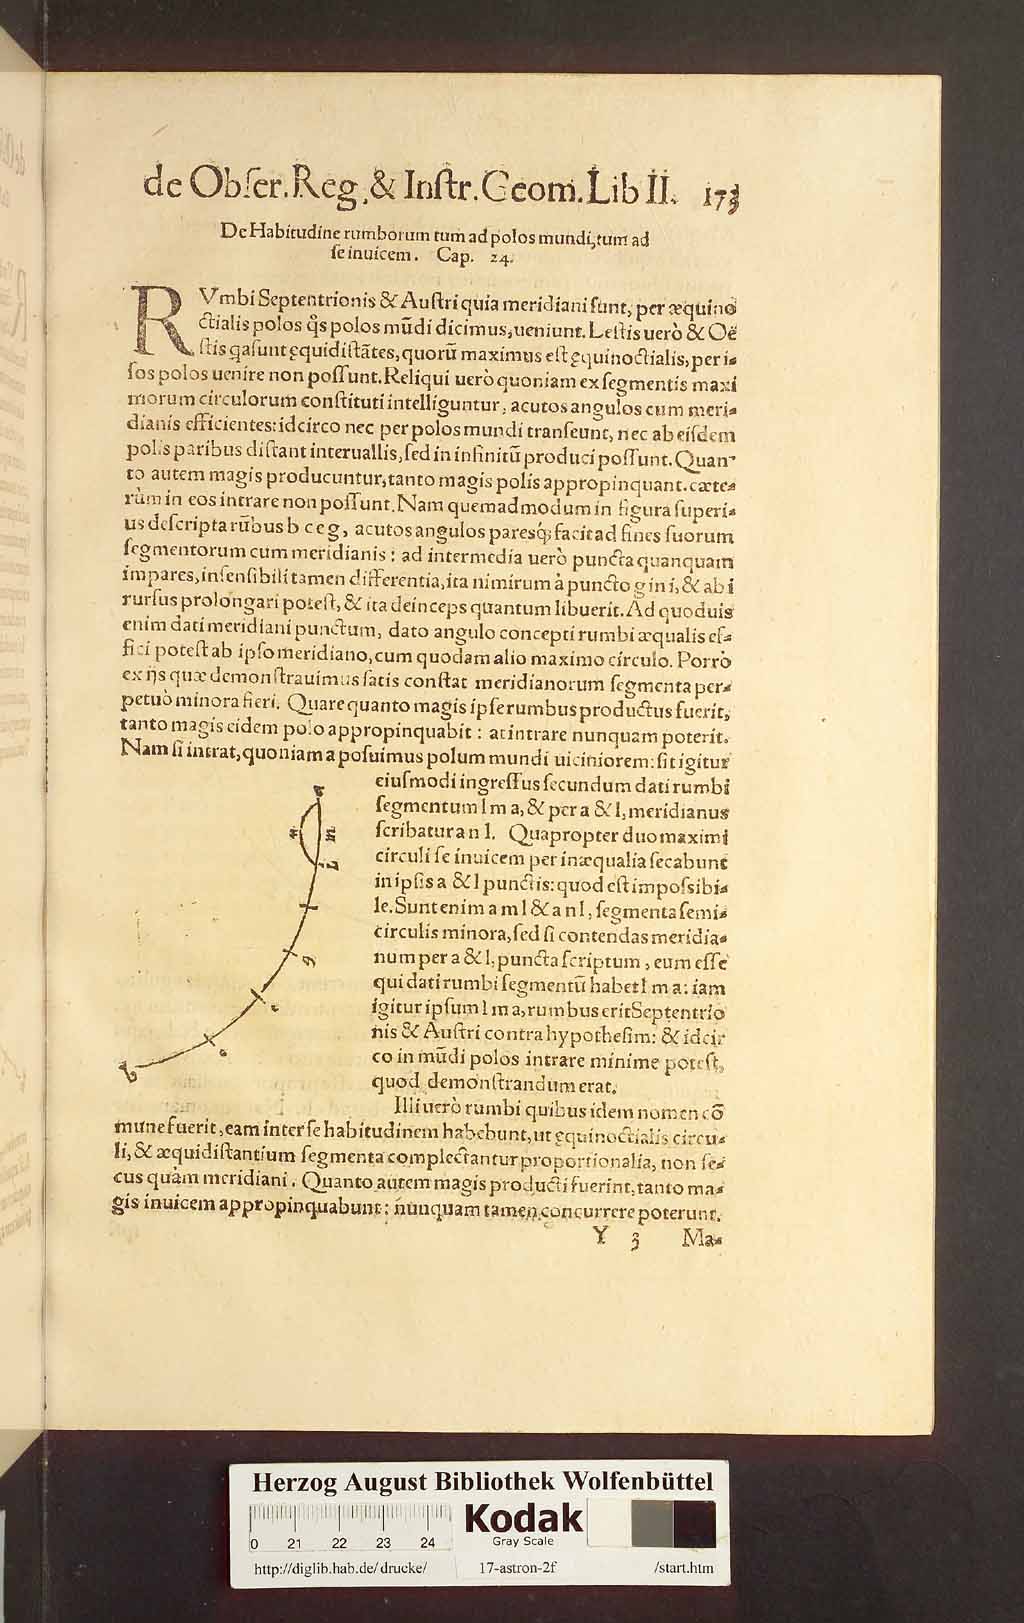 de Obser. Reg. & Instr. Geom. Lib II. 173
De Habitudine rumborum tum ad polos mundi, tum ad
se inuicem. Cap. 24.
RVmbi Septentrionis & Austri quia meridiani sunt, per æquino
ctialis polos q̃s polos mũdi dicimus, ueniunt. Lestis uerò & Oë
stis q̃a sunt ęquidistãtes, quorũ maximus est ęquinoctialis, per i⸗
sos polos uenire non possunt. Reliqui uerò quoniam ex segmentis maxi
morum circulorum constituti intelliguntur, acutos angulos cum meri⸗
dianis efficientes: idcirco nec per polos mundi transeunt, nec ab eisdem
polis paribus distant interuallis, sed in infinitũ produci possunt. Quan⸗
to autem magis producuntur, tanto magis polis appropinquant. cæte⸗
rùm in eos intrare non possunt. Nam quemadmodum in figura superi⸗
us descripta rũbus b c e g, acutos angulos paresq́; facit ad fines suorum
segmentorum cum meridianis: ad intermedia uerò puncta quanquam
impares, insensibili tamen differentia, ita nimirum à puncto g in i, & ab i
rursus prolongari potest, & ita deinceps quantum libuerit. Ad quoduis
enim dati meridiani punctum, dato angulo concepti rumbi æqualis ef⸗
fici potest ab ipso meridiano, cum quodam alio maximo circulo. Porrò
ex ijs quæ demonstrauimus satis constat meridianorum segmenta per⸗
petuò minora fieri. Quare quanto magis ipse rumbus productus fuerit,
tanto magis eidem polo appropinquabit: at intrare nunquam poterit.
Nam si intrat, quoniam a posuimus polum mundi uiciniorem: sit igitur
eiusmodi ingressus secundum dati rumbi
segmentum l m a, & per a & l, meridianus
scribatur a n l. Quapropter duo maximi
circuli se inuicem per inæqualia secabunt
in ipsis a & l punctis: quod est impossibi⸗
le. Sunt enim a m l & a n l, segmenta semi⸗
circulis minora, sed si contendas meridia⸗
num per a & l, puncta scriptum, eum esse
qui dati rumbi segmentũ habet l m a: iam
igitur ipsum l m a, rumbus erit Septentrio
nis & Austri contra hypothesim: & idcir
co in mũdi polos intrare minime potest,
quod demonstrandum erat.
a
n m
l
g
e
c
b
Illi uerò rumbi quibus idem nomen cõ
mune fuerit, eam inter se habitudinem habebunt, ut ęquinoctialis circu⸗
li, & æquidistantium segmenta complectantur proportionalia, non se⸗
cus quàm meridiani. Quanto autem magis producti fuerint, tanto ma⸗
gis inuicem appropinquabunt: nunquam tamen concurrere poterunt.
Y 3 Ma⸗
Herzog August Bibliothek Wolfenbüttel
0 21 22 23 24
Kodak
Gray Scale
http://diglib.hab.de/drucke/ 17-astron-2f /start.htm